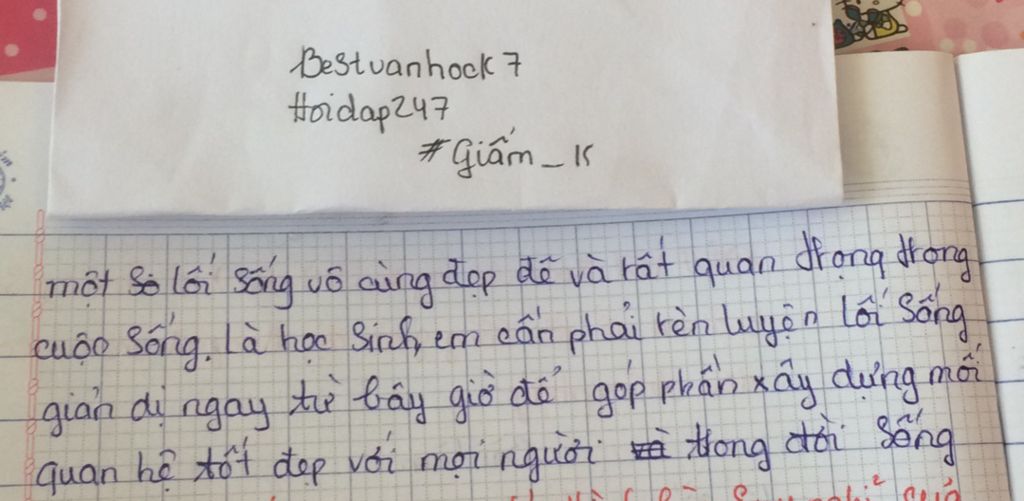 Bestvanhock7
Hoidap247
#Giấm_K
một số lối sống vô cùng đẹp đẽ và rất quan trọng trong
cuộc sống. Là học sinh, em cần phải rèn luyện lối sống
giản dị ngay từ bây giờ để góp phần xây dựng mối
quan hệ tốt đẹp với mọi người trong đời sống